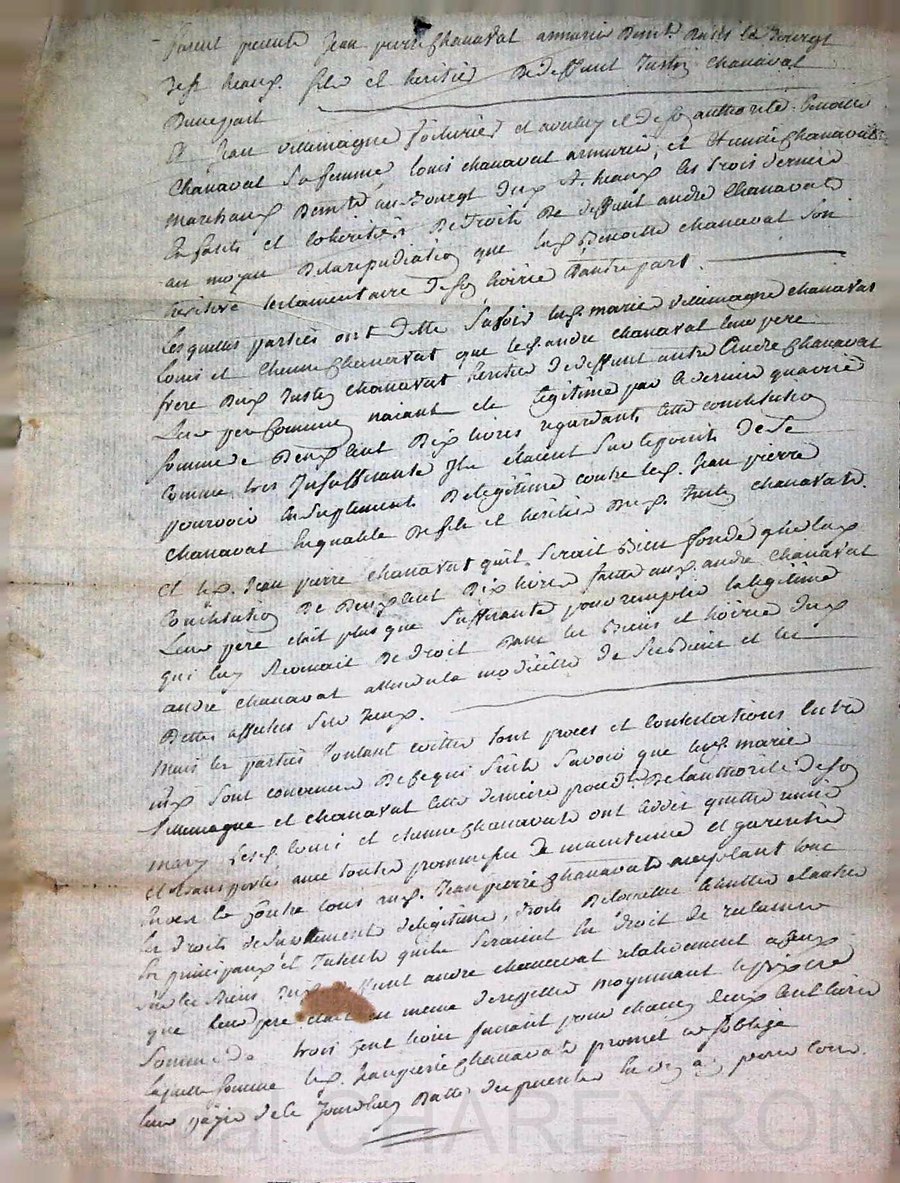 furent presents Jean pierre chanavat armurier demt dans le bourgt
de st heaux fils et heritier de deffunt Justin chanavat
dunepart
Et Jean villemagne voiturier et avec luy et de son authorité benoitte
chanavat sa femme, louis chanavat armurier, et Etienne chanavat
marchand demt au bourgt dud st heaux les trois dernier
Enfants et coheritiers de droits de deffunt andré chanavat
au moyen de la repudiation que lad benoitte chanavat son
heritiere testamentaire de son hoirie dautre part.
Lesquelles parties ont dit Savoir lesd marie villemagne chanavat
louis et Etienne chanavat que led andré chanavat leur pere
frere dud Justin chanavat heritier de deffunt autre André chanavat
Leur pere commun naiant ete legitimé par ce dernier qua une
somme de deux cent dix livres regardant cette constitution
comme tres Insuffisante Ils etaient sur le point de se
pourvoir en suplement de legitime contre led. Jean pierre
chanavat En qualité de fils et héritier dud. Justin chanavat.
Et led. Jean pierre chanavat quil serait bien fondé que lad
Constitution de deux cent dix livres faitte aud andré chanavat
Leur pere etait plus que suffisante pour remplir la légitime
qui luy revenait de droit dans les biens et hoirie dud
andré chanavat attendu la modicité de ses biens et les
Dettes affectées sur Iceux.
Mais les parties voulant eviter tout proces et contestations entre
elles sont convenues de ce qui suit Savoir que lesd marie
villemagne et chanavat cette derniere procedt de l'authorité de son
mary lesd. louis et etienne chanavat ont cédé quitté remis
et transporté avec toutte promesse de maintenue et garentie
Envers et contre tous aud. Jean pierre chanavat acceptant tous
les droits de suplement de légitime, droits
En principaux et Interets quils seraient En droit de reclamer
sur les biens dud deffunt andré chanavat relativement a ceux
que leur pere etait en meme de repetter moyennant le prix et
Somme de trois cent livres faisant pour chacun deux cent livres
laquelle somme led. Jean pierre chanavat promet et soblige
leur payer de ce Jourdhuy datte des presentes En un an pour lors.
Pascal CHAREYRON